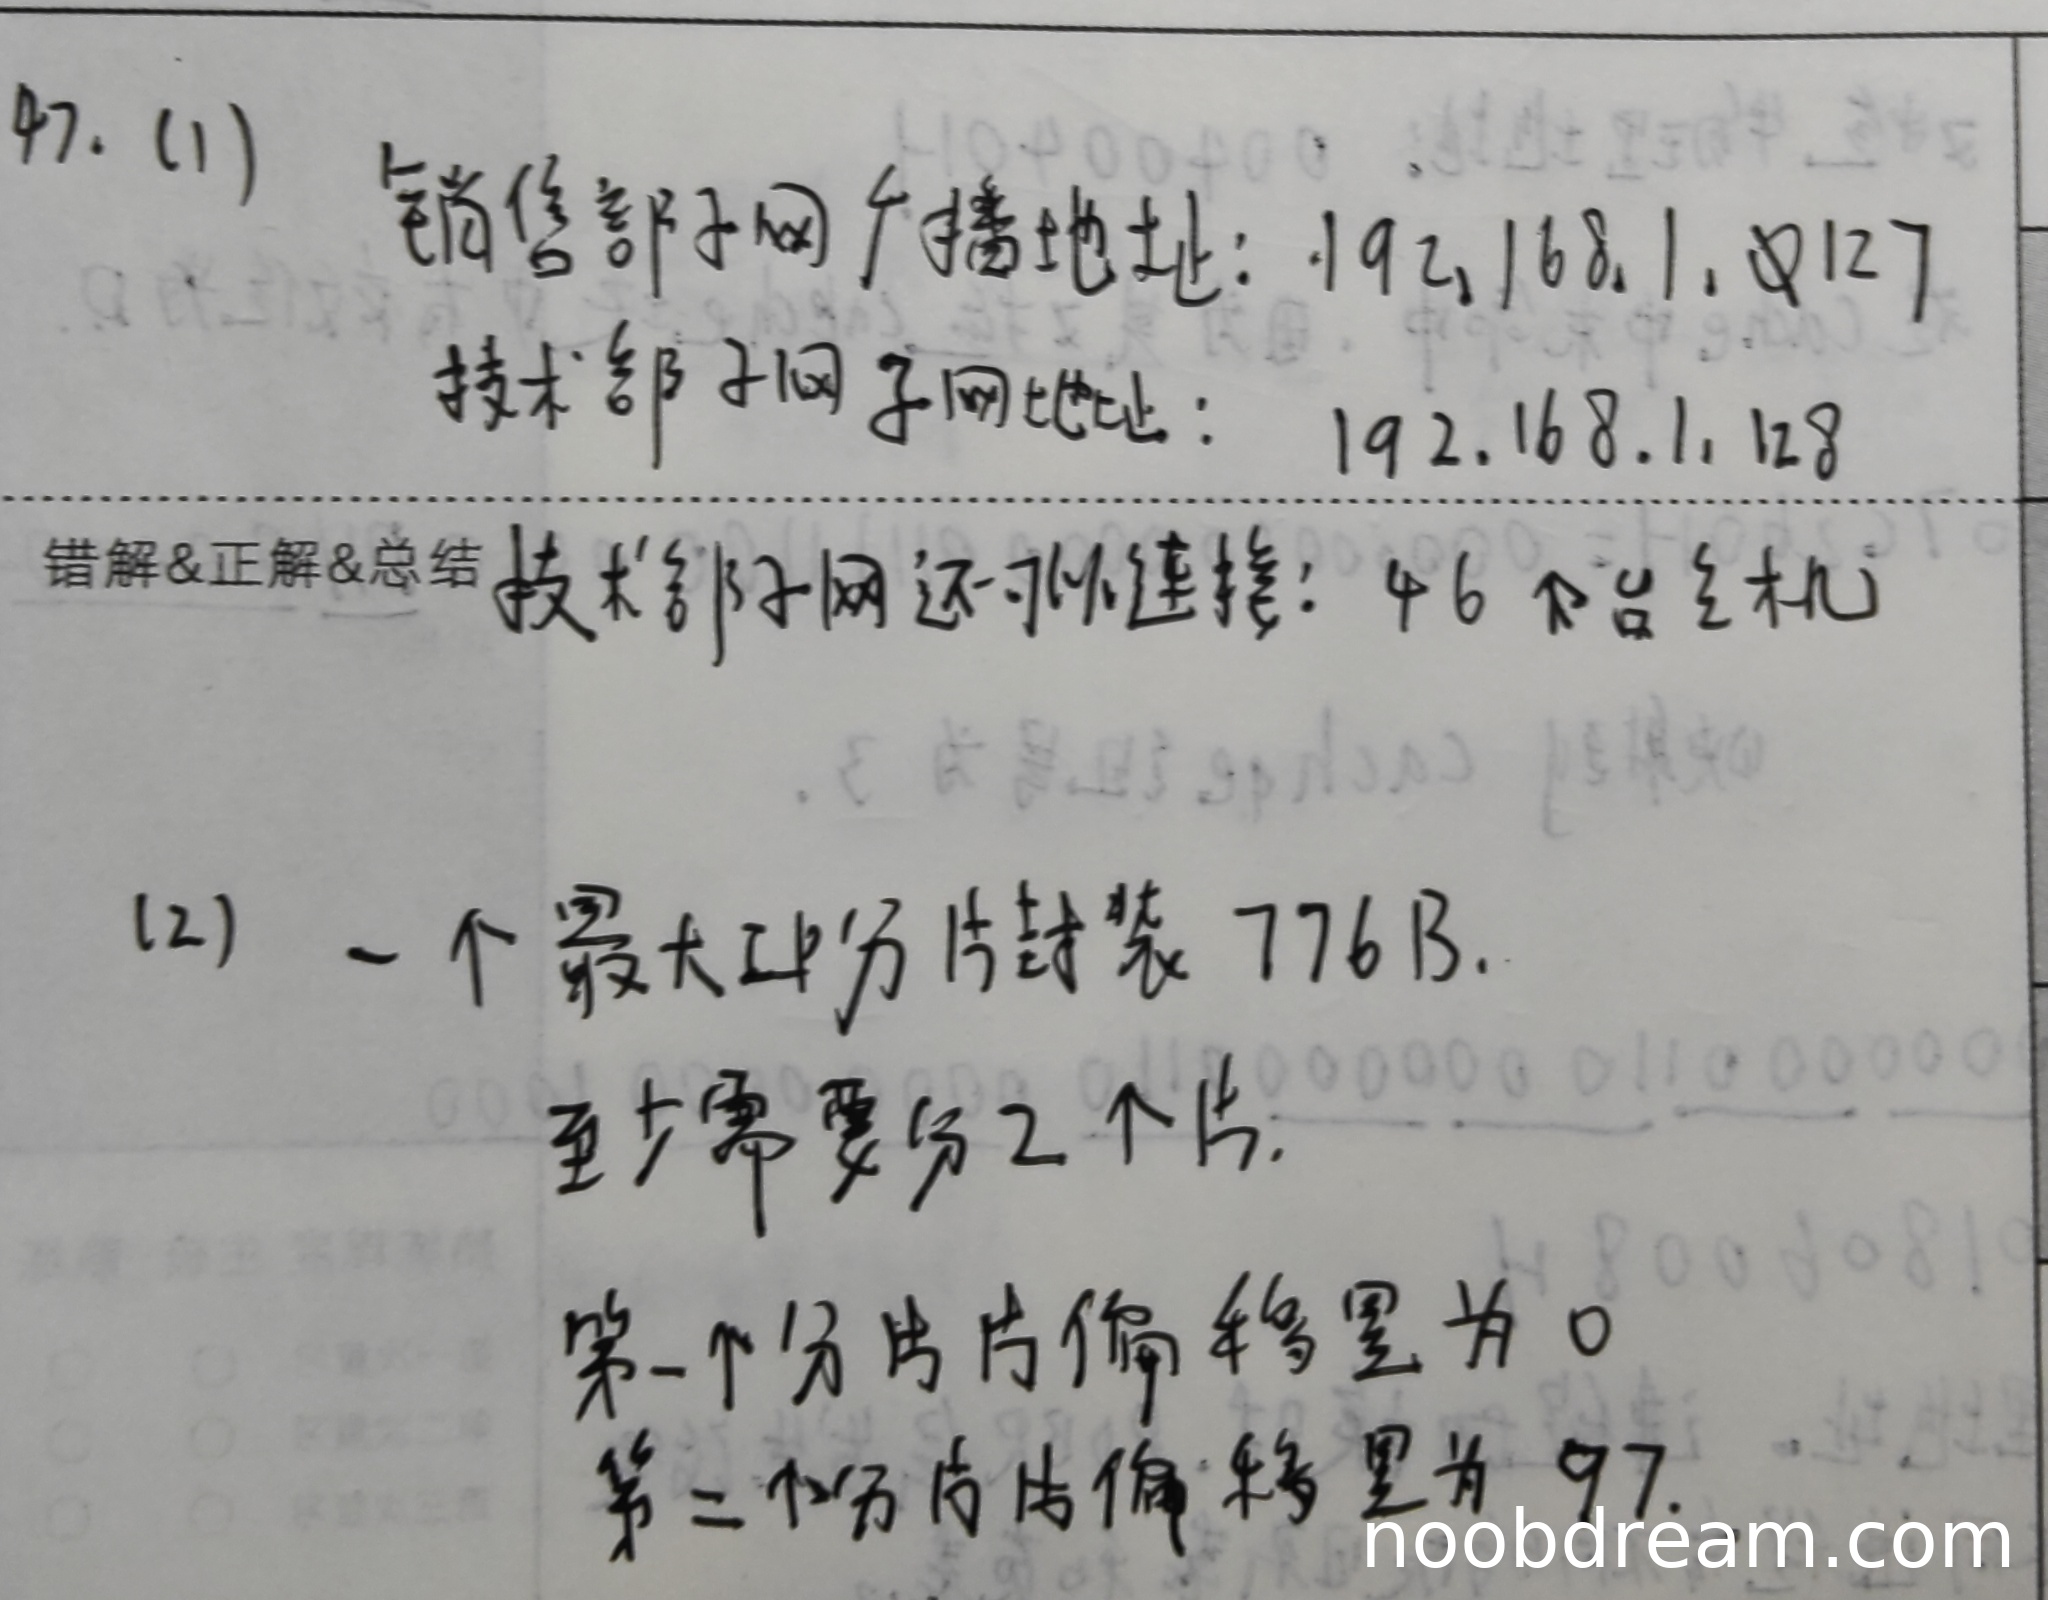 47. (1)
销售部子网广播地址: 192.168.1.127
技术部子网子网地址: 192.168.1.128
错解&正解&总结
技术部子网还可以连接: 46 台主机
映射到 cache组号为 3.
(2) 一个最大IP分片封装 776B.
至少需要分 2 个片.
第一个分片片偏移量为 0
第二个分片片偏移量为 97.
noobdream.com